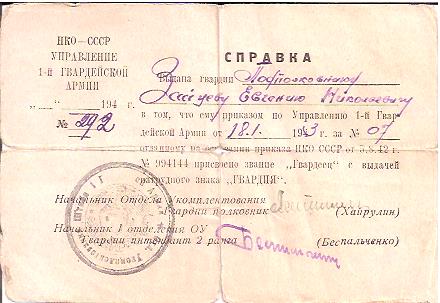 НКО—СССР
УПРАВЛЕНИЕ
1-й ГВАРДЕЙСКОЙ
АРМИИ
"___"_______194 г.
№ 292
СПРАВКА
Выдана гвардии Подполковнику
Зайцеву Евгению Николаевичу
в том, что ему приказом по Управлению 1-й Гвар-
дейской Армии от 18.1. 1943 г. за № 07
отданному на основании приказа НКО СССР от 3.8.42 г.
№ 994144 присвоено звание „Гвардеец" с выдачей
нагрудного знака „ГВАРДИЯ".
Начальник Отдела укомплектования
Гвардии полковник
(Хайрулин)
Начальник 1 отделения ОУ
Гвардии интендант 2 ранга
(Беспальченко)